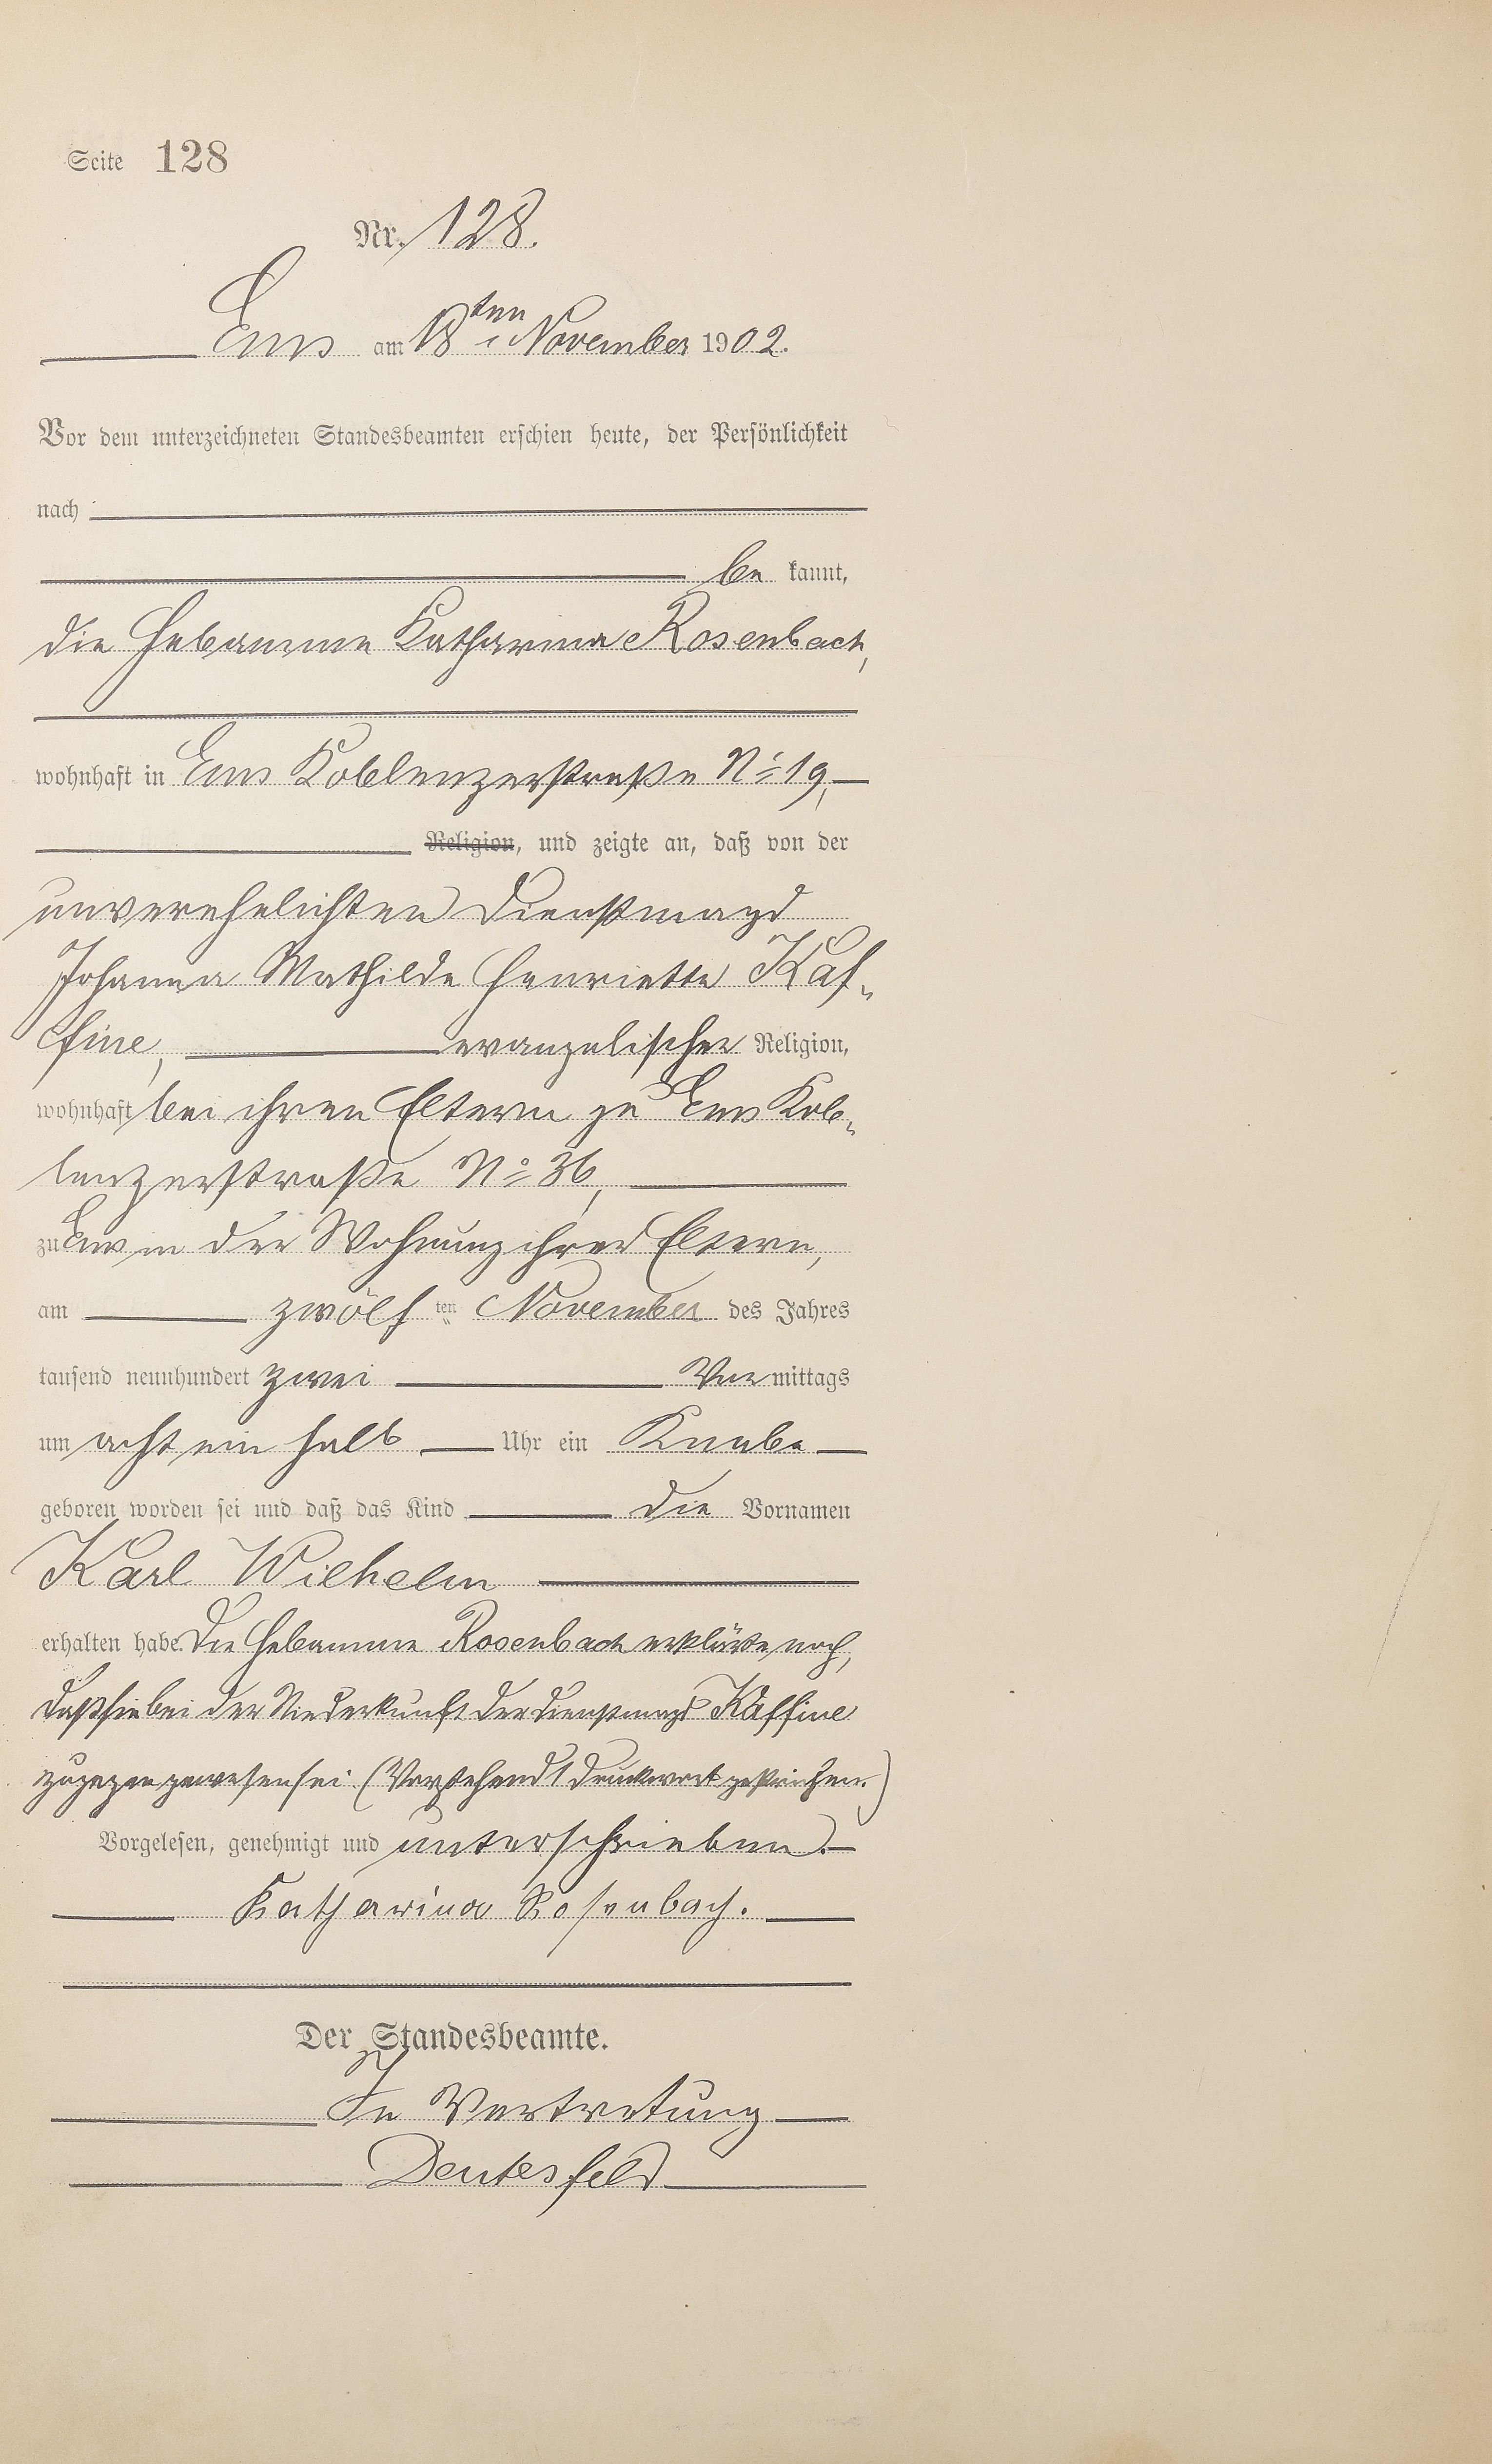 Seite 128
Nr. 128.
Ems am 18ten November 1902.
Vor dem unterzeichneten Standesbeamten erschien heute, der Persönlichkeit
nach
be kannt,
die Hebamme Katharina Rosenbach,
wohnhaft in Ems Koblenzerstraße No 19,
Religion, und zeigte an, daß von der
unverehelichten Dienstmagd
Johanna Mathilde Henriette Kaf-
fine, evangelischer Religion,
wohnhaft bei ihren Eltern zu Ems Kob-
lenzerstraße No 36,
zu Ems in der Wohnung ihrer Eltern,
am zwölf ten November des Jahres
tausend neunhundert zwei Vor mittags
um acht ein halb Uhr ein Knabe
geboren worden sei und daß das Kind die Vornamen
Karl Wilhelm
erhalten habe. Die Hebamme Rosenbach erklärte noch,
daß sie bei der Niederkunft der Dienstmagd Kaffine
zugegen gewesen sei (Vorstehend 1 Druckwort gestrichen.)
Vorgelesen, genehmigt und unterschrieben.
Katharina Rosenbach.
Der Standesbeamte.
In Vertretung
Deutesfeld